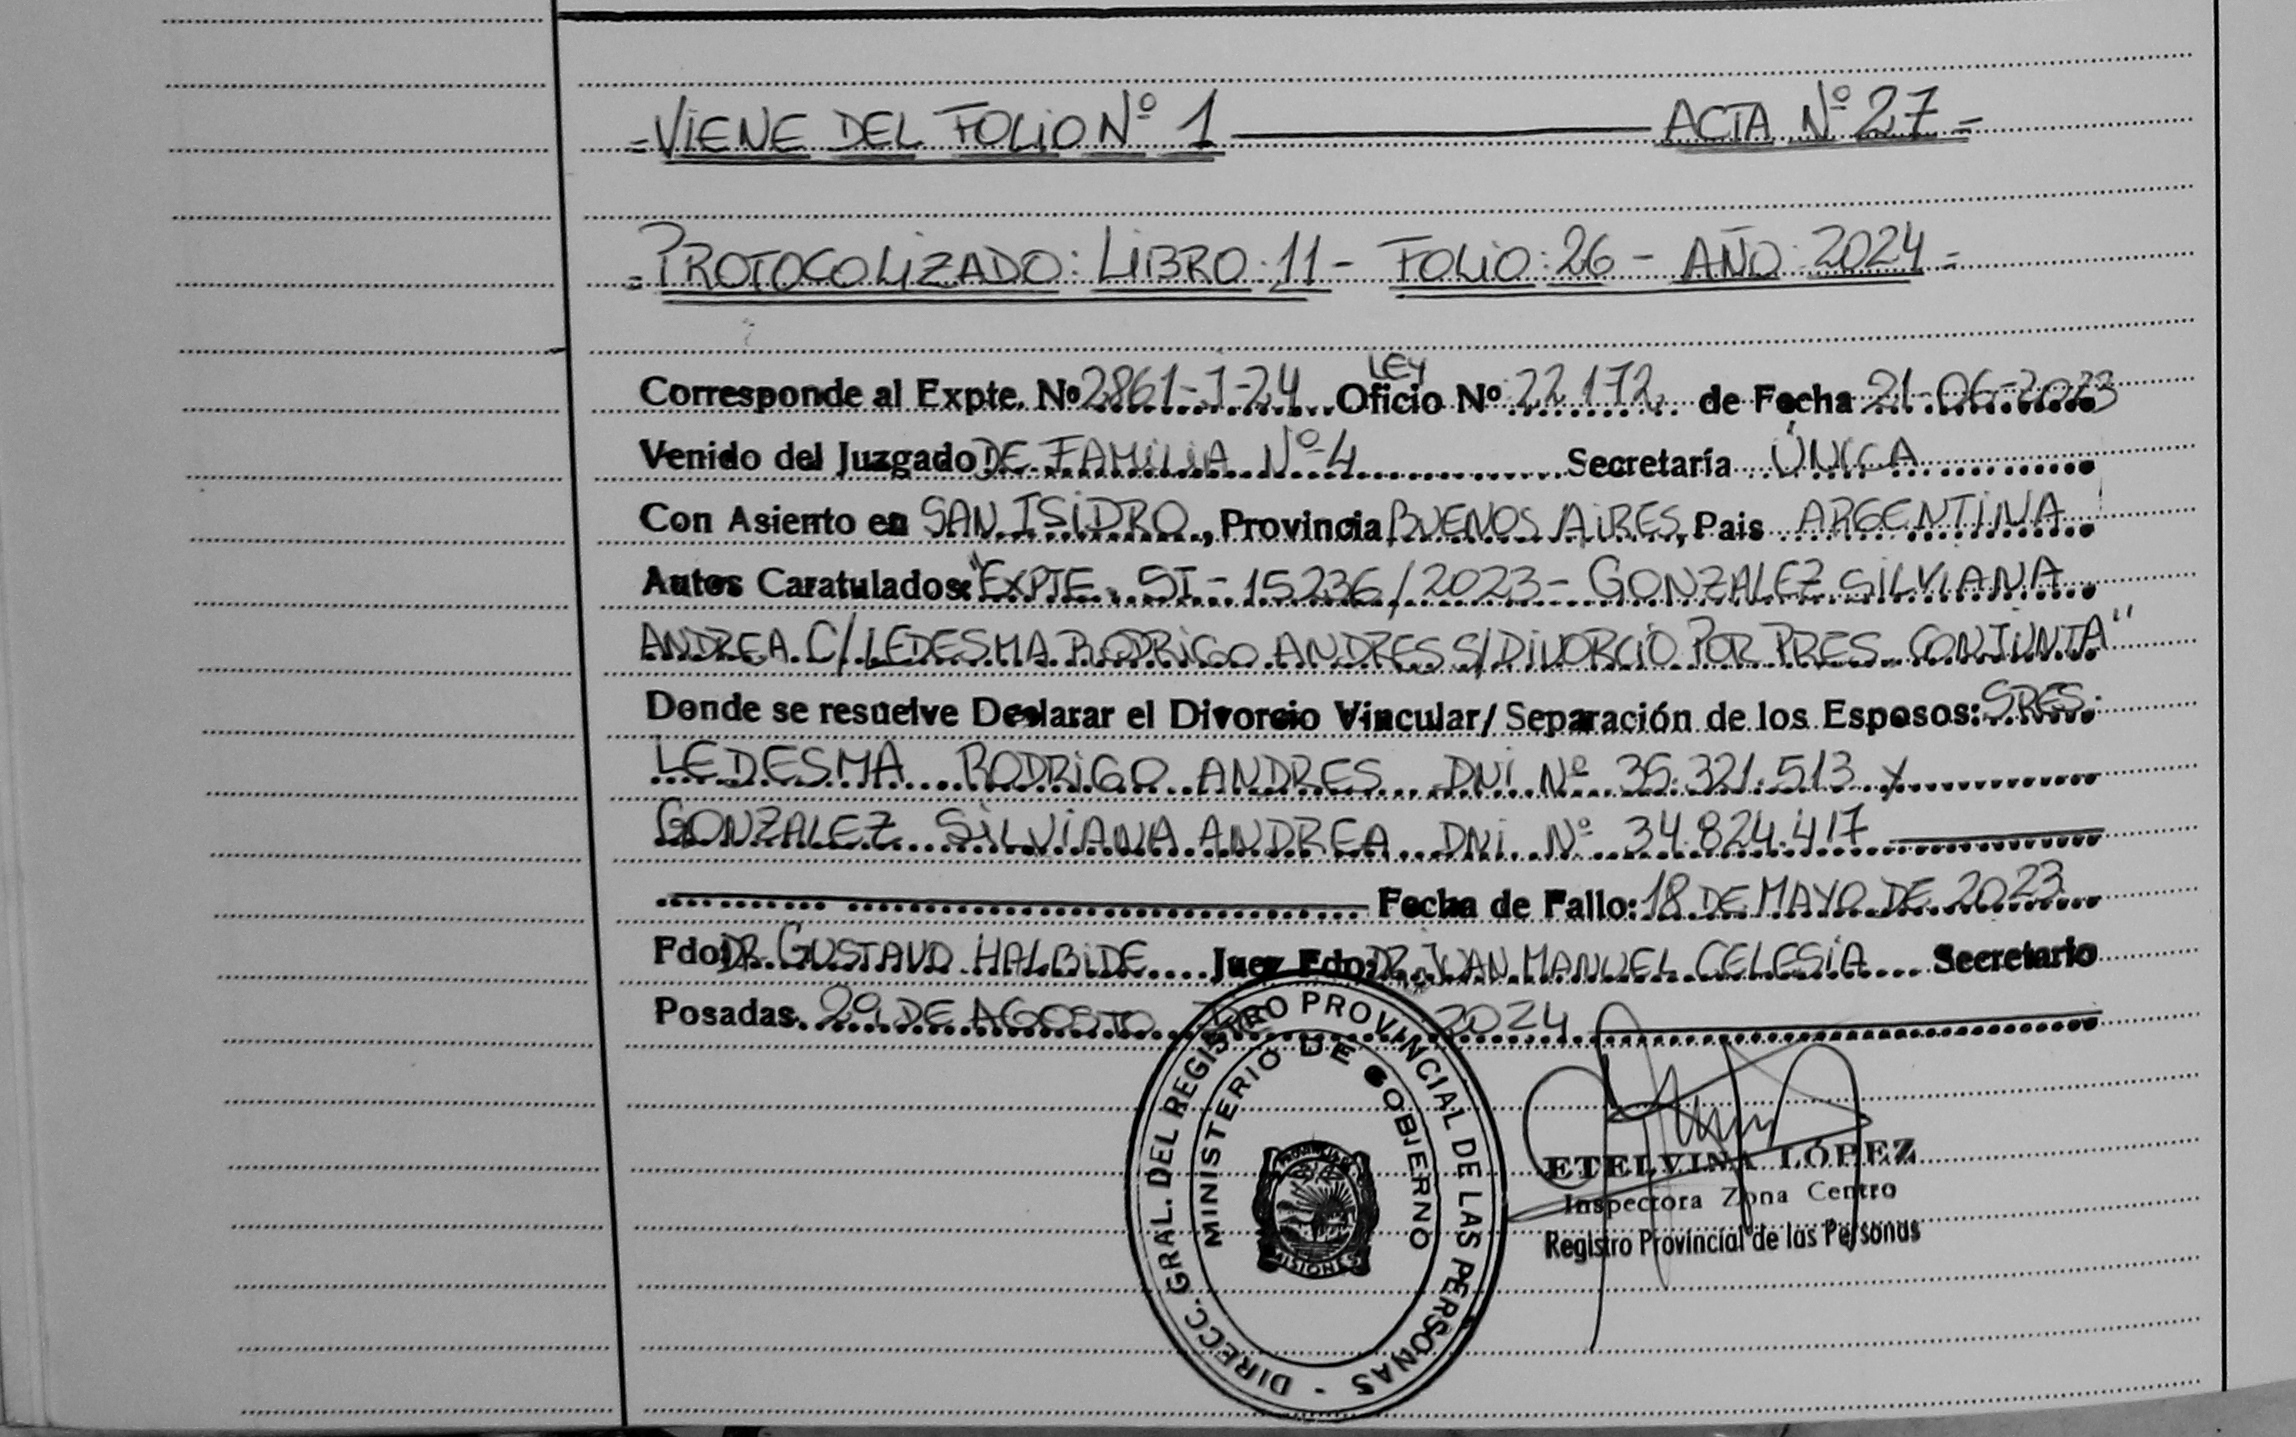 =VIENE DEL FOLIO Nº 1 ACTA Nº 27=
=PROTOCOLIZADO: LIBRO: 11 - FOLIO: 26 - AÑO: 2024=
Corresponde al Expte. Nº 2861-J-24 LEY Oficio Nº 22.172 de Fecha 21-06-2023
Venido del Juzgado DE FAMILIA Nº 4 Secretaría ÚNICA
Con Asiento en SAN ISIDRO, Provincia BUENOS AIRES, Pais ARGENTINA
Autos Caratulados: "EXPTE. SI-15236/2023- GONZALEZ SILVIANA
ANDREA C/ LEDESMA RODRIGO ANDRES S/ DIVORCIO POR PRES. CONJUNTA"
Donde se resuelve Declarar el Divorcio Vincular/ Separación de los Esposos: SRES.
LEDESMA RODRIGO ANDRES DNI Nº 35.321.513 y
GONZALEZ SILVIANA ANDREA DNI Nº 34.824.417
Fecha de Fallo: 18 DE MAYO DE 2023
Fdo: DR. GUSTAVO HALBIDE Juez Fdo: DR. JUAN MANUEL CELESIA Secretario
Posadas, 29 DE AGOSTO DE 2024
DIRECC. GRAL. DEL REGISTRO PROVINCIAL DE LAS PERSONAS -
MINISTERIO DE GOBIERNO
MISIONES
ETELVINA LÓPEZ
Inspectora Zona Centro
Registro Provincial de las Personas